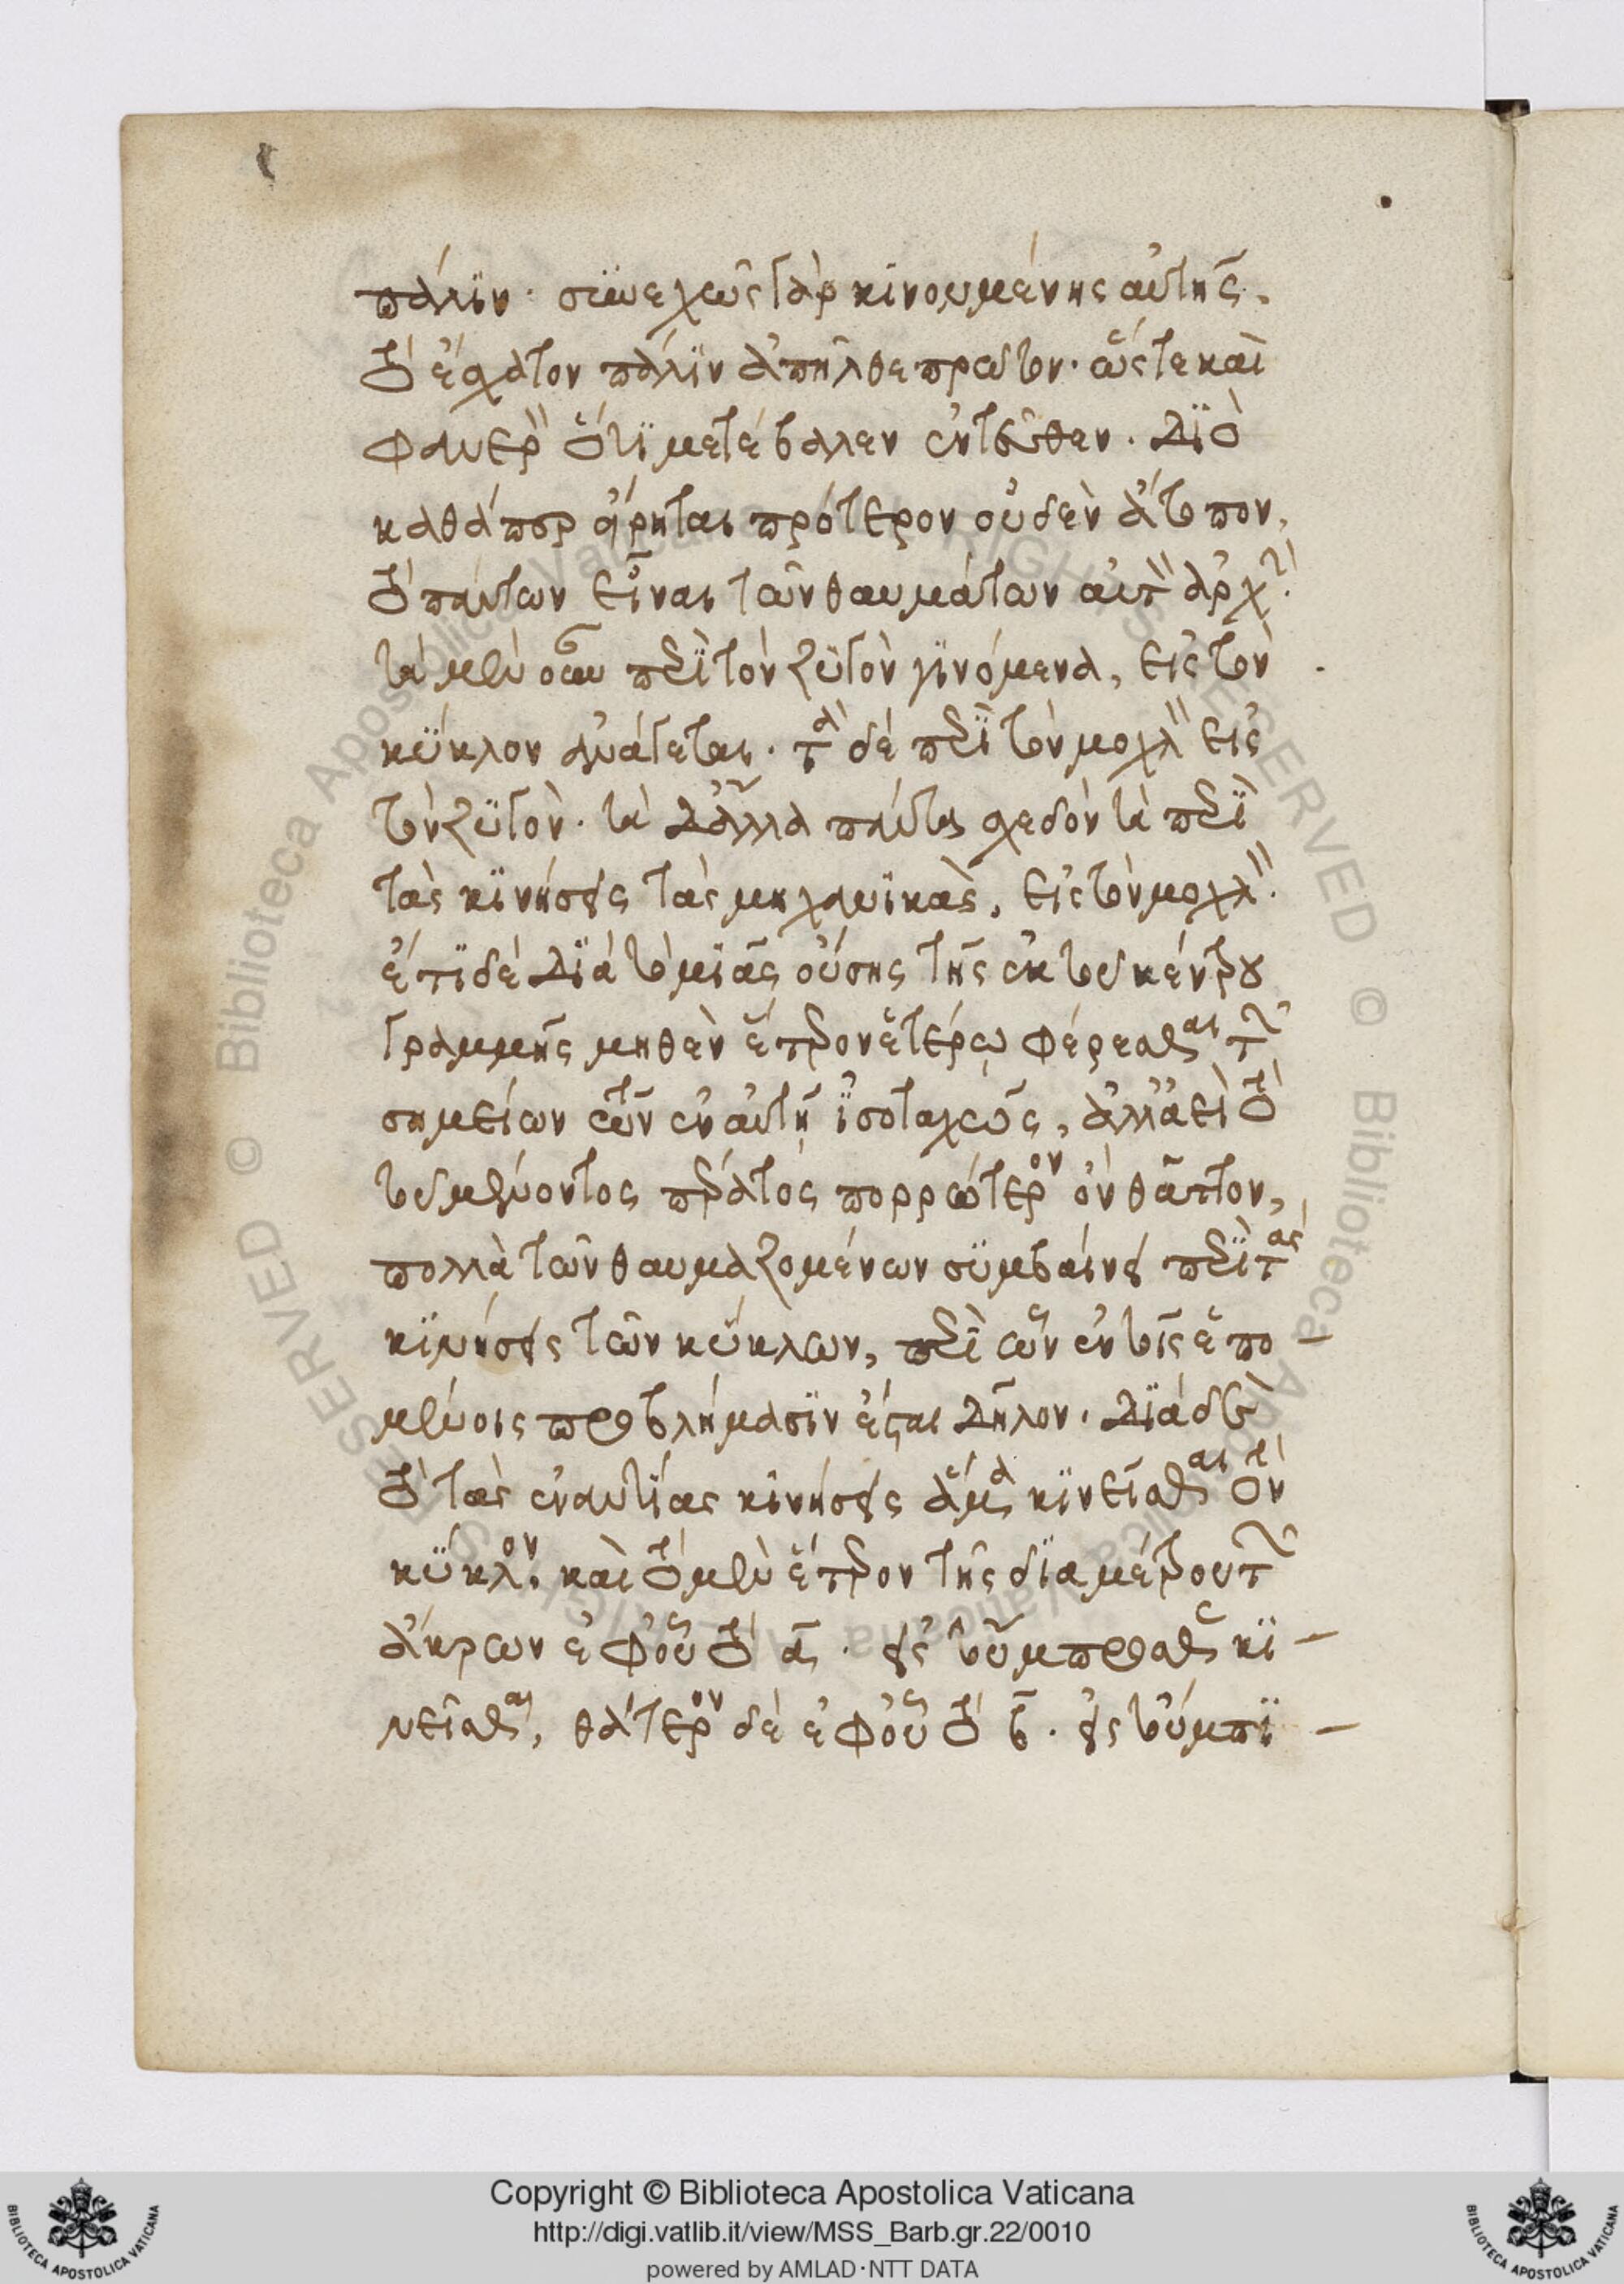 πάλιν· συνεχῶς γὰρ κινουμένης αὐτῆς,
τὸ ἔσχατον πάλιν ἀπῆλθε πρῶτον· ὥςτε καὶ
φανερὸν ὅτι μετέβαλεν ἐντεῦθεν. Διὸ
καθάπερ εἴρηται πρότερον οὐδὲν ἄτοπον,
τὸ πάντων εἶναι τῶν θαυμάτων αὐτὸν ἀρχήν.
τὰ μὲν οὖν περὶ τὸν ζυγὸν γινόμενα, εἰς τὸν
κύκλον ἀνάγεται. τὰ δὲ περὶ τὸν μοχλὸν εἰς
τὸν ζυγὸν. τὰ δ᾽ ἄλλα πάντα σχεδὸν τὰ περὶ
τὰς κινήσεις τὰς μηχανικὰς, εἰς τὸν μοχλόν.
ἔτι δὲ διὰ τὸ μιᾶς οὔσης τῆς ἐκ τοῦ κέντρου
γραμμῆς μηθὲν ἕτερον ἑτέρῳ φέρεσθαι τῶν
σημείων τῶν ἐν αὐτῇ ἰσοταχῶς, ἀλλ᾽ ἀεὶ τὸ
τοῦ μένοντος πέρατος πορρώτερον ὂν θᾶττον,
πολλὰ τῶν θαυμαζομένων συμβαίνει περὶ τὰς
κινήσεις τῶν κύκλων, περὶ ὧν ἐν τοῖς ἑπο
μένοις προβλήμασιν ἔσται δῆλον. Διὰ δὲ
τὸ τὰς ἐναντίας κινήσεις ἅμα κινεῖσθαι τὸν
κύκλον, καὶ τὸ μὲν ἕτερον τῆς διαμέτρου τῶν
ἄκρων ἐφ᾽ οὗ τὸ α. εἰς τοὔμπροσθεν κι
νεῖσθαι, θάτερον δὲ ἐφ᾽ οὗ τὸ β. εἰς τοὔμπι
Copyright © Biblioteca Apostolica Vaticana
http://digi.vatlib.it/view/MSS_Barb.gr.22/0010
powered by AMLAD·NTT DATA